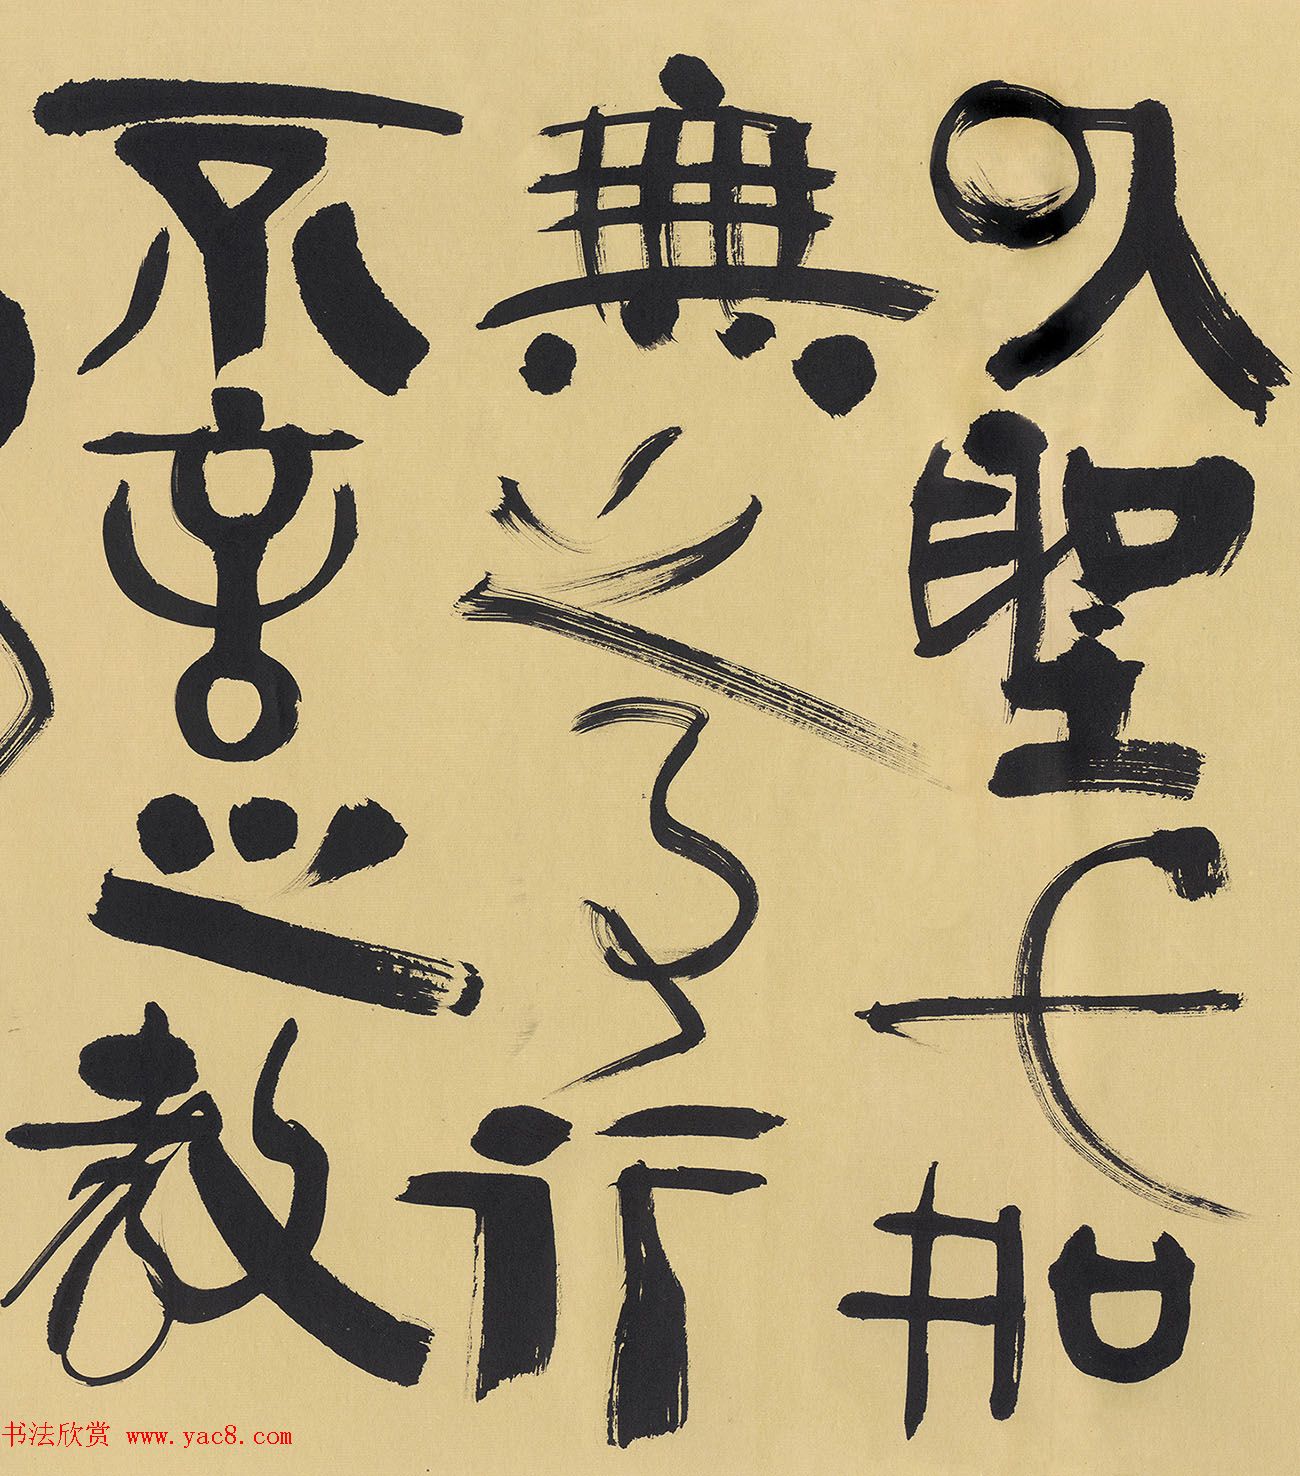 以聖
無之事行
不言之教
书法欣赏 www.yac8.com